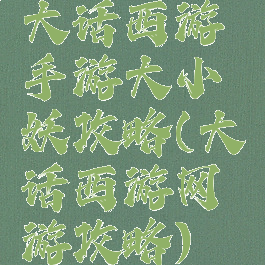 大话西游
手游大小
妖攻略(大
话西游网
游攻略)